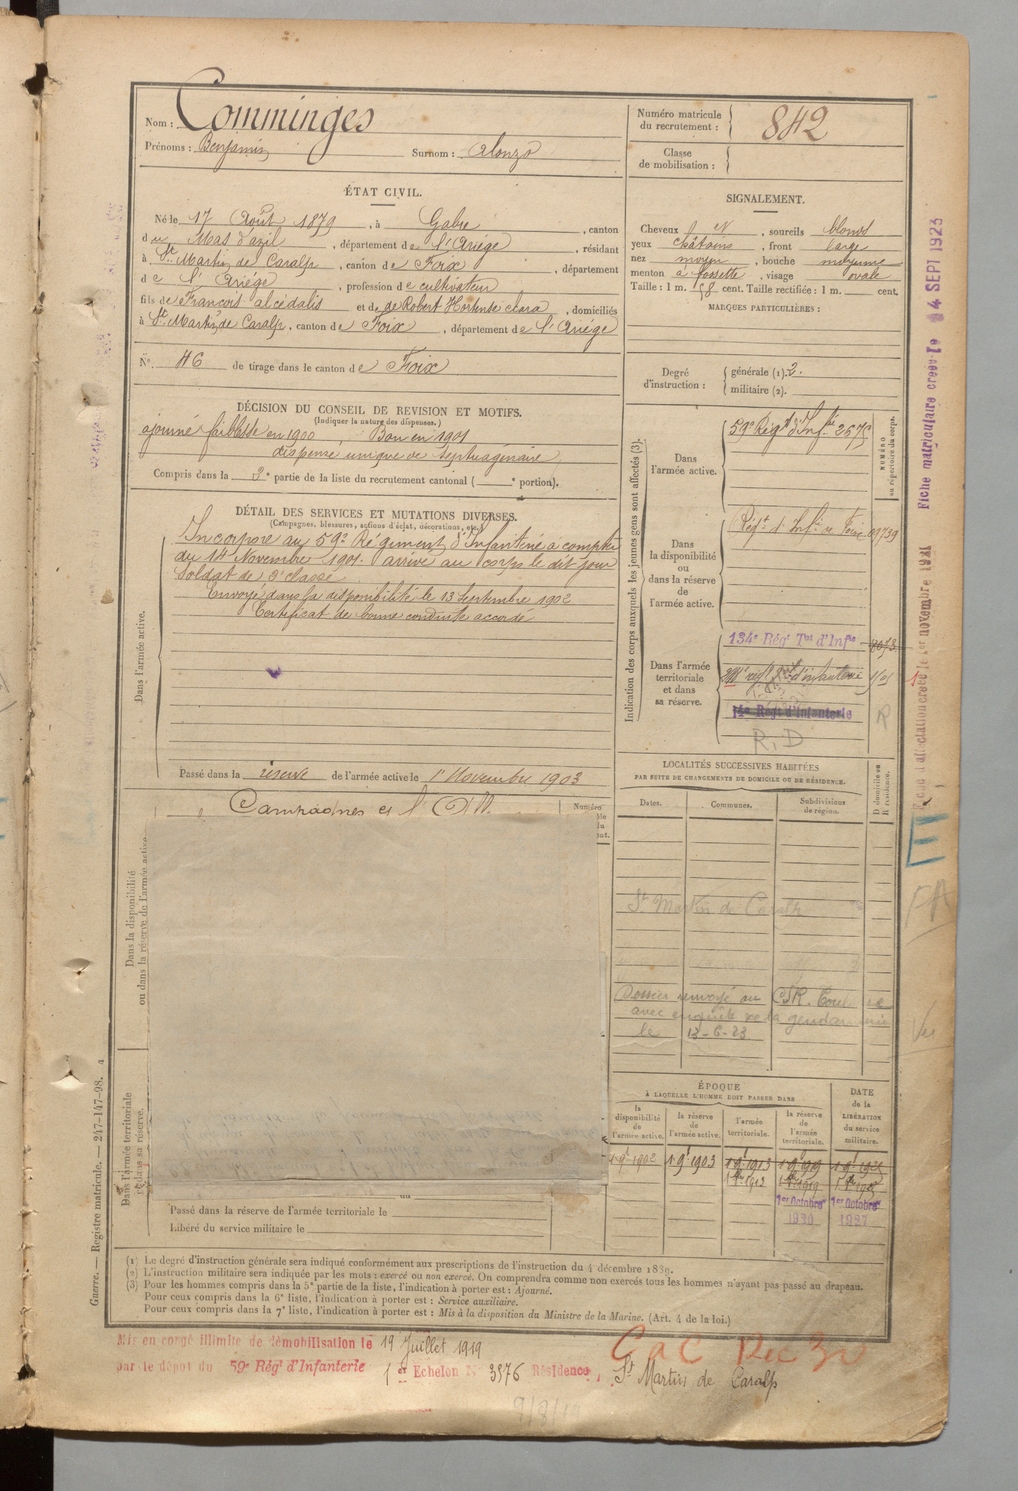 Nom : Comminges
Prénoms : Benjamin Surnom : Alonzo
Numéro matricule du recrutement : 842
Classe de mobilisation :
ÉTAT CIVIL.
Né le 17 Août 1879, à Gabre, canton
du Mas d'azil, département de l'Ariège, résidant
à St Martin de Caralp, canton de Foix, département
de l'Ariège, profession de cultivateur
fils de François alcédalis et de de Robert Hortense clara, domiciliés
à St Martin de Caralp, canton de Foix, département de l'Ariège
N° 46 de tirage dans le canton de Foix
SIGNALEMENT.
Cheveux et, sourcils blonds
yeux châtains, front large
nez moyen, bouche moyenne
menton à fossette, visage ovale
Taille : 1 m. 58 cent. Taille rectifiée : 1 m. cent.
MARQUES PARTICULIÈRES :
Degré d'instruction : générale (1). 2.
militaire (2).
DÉCISION DU CONSEIL DE REVISION ET MOTIFS.
(Indiquer la nature des dispenses.)
ajourné faiblesse en 1900, Bon en 1901
dispensé unique de septuagénaire
Compris dans la 2e partie de la liste du recrutement cantonal ( e portion).
DÉTAIL DES SERVICES ET MUTATIONS DIVERSES.
(Campagnes, blessures, actions d'éclat, décorations, etc.)
Dans l'armée active.
Incorporé au 59e Régiment d'Infanterie à compter
du 14 Novembre 1901. arrivé au corps le dit jour
soldat de 2e classe
Envoyé dans la disponibilité le 13 Septembre 1902
Certificat de bonne conduite accordé
Passé dans la réserve de l'armée active le 1er Novembre 1903
Campagnes
Numéro
Dans la disponibilité ou dans la réserve de l'armée active
Dans l'armée territoriale et dans sa réserve.
Passé dans la réserve de l'armée territoriale le
Libéré du service militaire le
Indication des corps auxquels les jeunes gens sont affectés (3).
NUMÉRO au répertoire du corps.
Dans l'armée active.
59e Régt d'Infrie 2675
Dans la disponibilité ou dans la réserve de l'armée active.
Régt d'Infie de Foix
Dans l'armée territoriale et dans sa réserve.
134e Régt Tal d'Infie
14e Régt d'Infanterie
R
R.D
LOCALITÉS SUCCESSIVES HABITÉES
PAR SUITE DE CHANGEMENTS DE DOMICILE OU DE RÉSIDENCE.
D domicile ou R résidence.
Dates. Communes. Subdivisions de région.
St Martin de Caralp
Dossier envoyé au CSR
avec enquête de la gendarmerie
le 13-6-23
ÉPOQUE
À LAQUELLE L'HOMME DOIT PASSER DANS
la disponibilité de l'armée active.
la réserve de l'armée active.
l'armée territoriale.
la réserve de l'armée territoriale.
DATE de la LIBÉRATION du service militaire.
1 9e 1902 1 9e 1903 1 9e 1913 1 9e 1919 1 9e 1925
1er Octobre 1er Octobre
Fiche matriculaire créée le 4 SEPT 1923
(1) Le degré d'instruction générale sera indiqué conformément aux prescriptions de l'instruction du 4 décembre 1889.
(2) L'instruction militaire sera indiquée par les mots : exercé ou non exercé. On comprendra comme non exercés tous les hommes n'ayant pas passé au drapeau.
(3) Pour les hommes compris dans la 5e partie de la liste, l'indication à porter est : Ajourné.
Pour ceux compris dans la 6e liste, l'indication à porter est : Service auxiliaire.
Pour ceux compris dans la 7e liste, l'indication à porter est : Mis à la disposition du Ministre de la Marine. (Art. 4 de la loi.)
Guerre. — Registre matricule. — 247-147-98.
Mis en congé illimité de démobilisation le 19 Juillet 1919
par le dépôt du 59e Régt d'Infanterie 1er Echelon N° 3976 Résidence, St Martin de Caralp